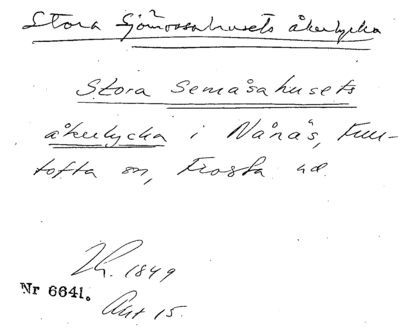 Stora Sjömossahusets åkerlycka
Stora Semåsahusets
åkerlycka i Nånäs, Ful-
tofta sn, Frosta hd.
1849
Nr 6641.
Akt 15.